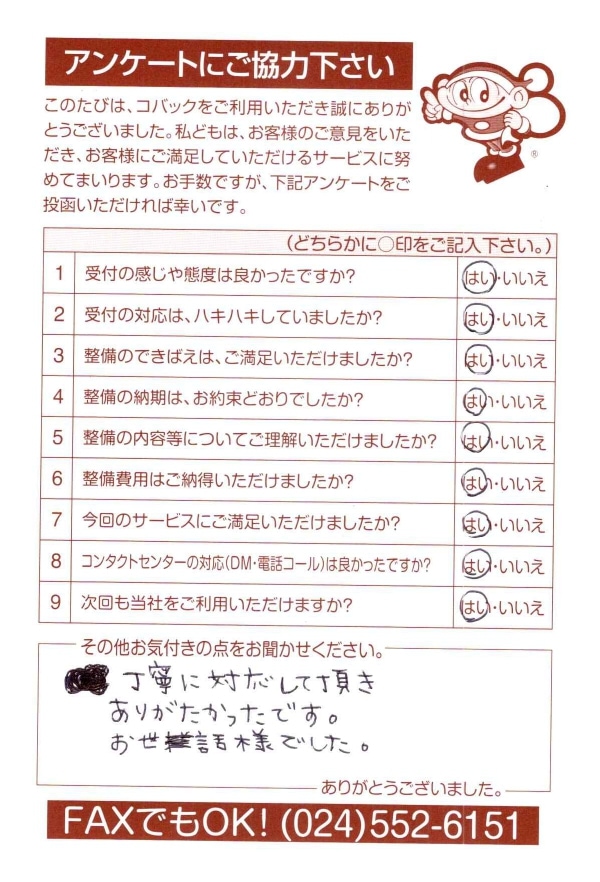 アンケートにご協力下さい
このたびは、コバックをご利用いただき誠にありが
とうございました。私どもは、お客様のご意見をいた
だき、お客様にご満足していただけるサービスに努
めてまいります。お手数ですが、下記アンケートをご
投函いただければ幸いです。
®
(どちらかに○印をご記入下さい。)
1 受付の感じや態度は良かったですか? はい・いいえ
2 受付の対応は、ハキハキしていましたか? はい・いいえ
3 整備のできばえは、ご満足いただけましたか? はい・いいえ
4 整備の納期は、お約束どおりでしたか? はい・いいえ
5 整備の内容等についてご理解いただけましたか? はい・いいえ
6 整備費用はご納得いただけましたか? はい・いいえ
7 今回のサービスにご満足いただけましたか? はい・いいえ
8 コンタクトセンターの対応(DM・電話コール)は良かったですか? はい・いいえ
9 次回も当社をご利用いただけますか? はい・いいえ
その他お気付きの点をお聞かせください。
丁寧に対応して頂き
ありがたかったです。
お世話様でした。
ありがとうございました。
FAXでもOK! (024)552-6151